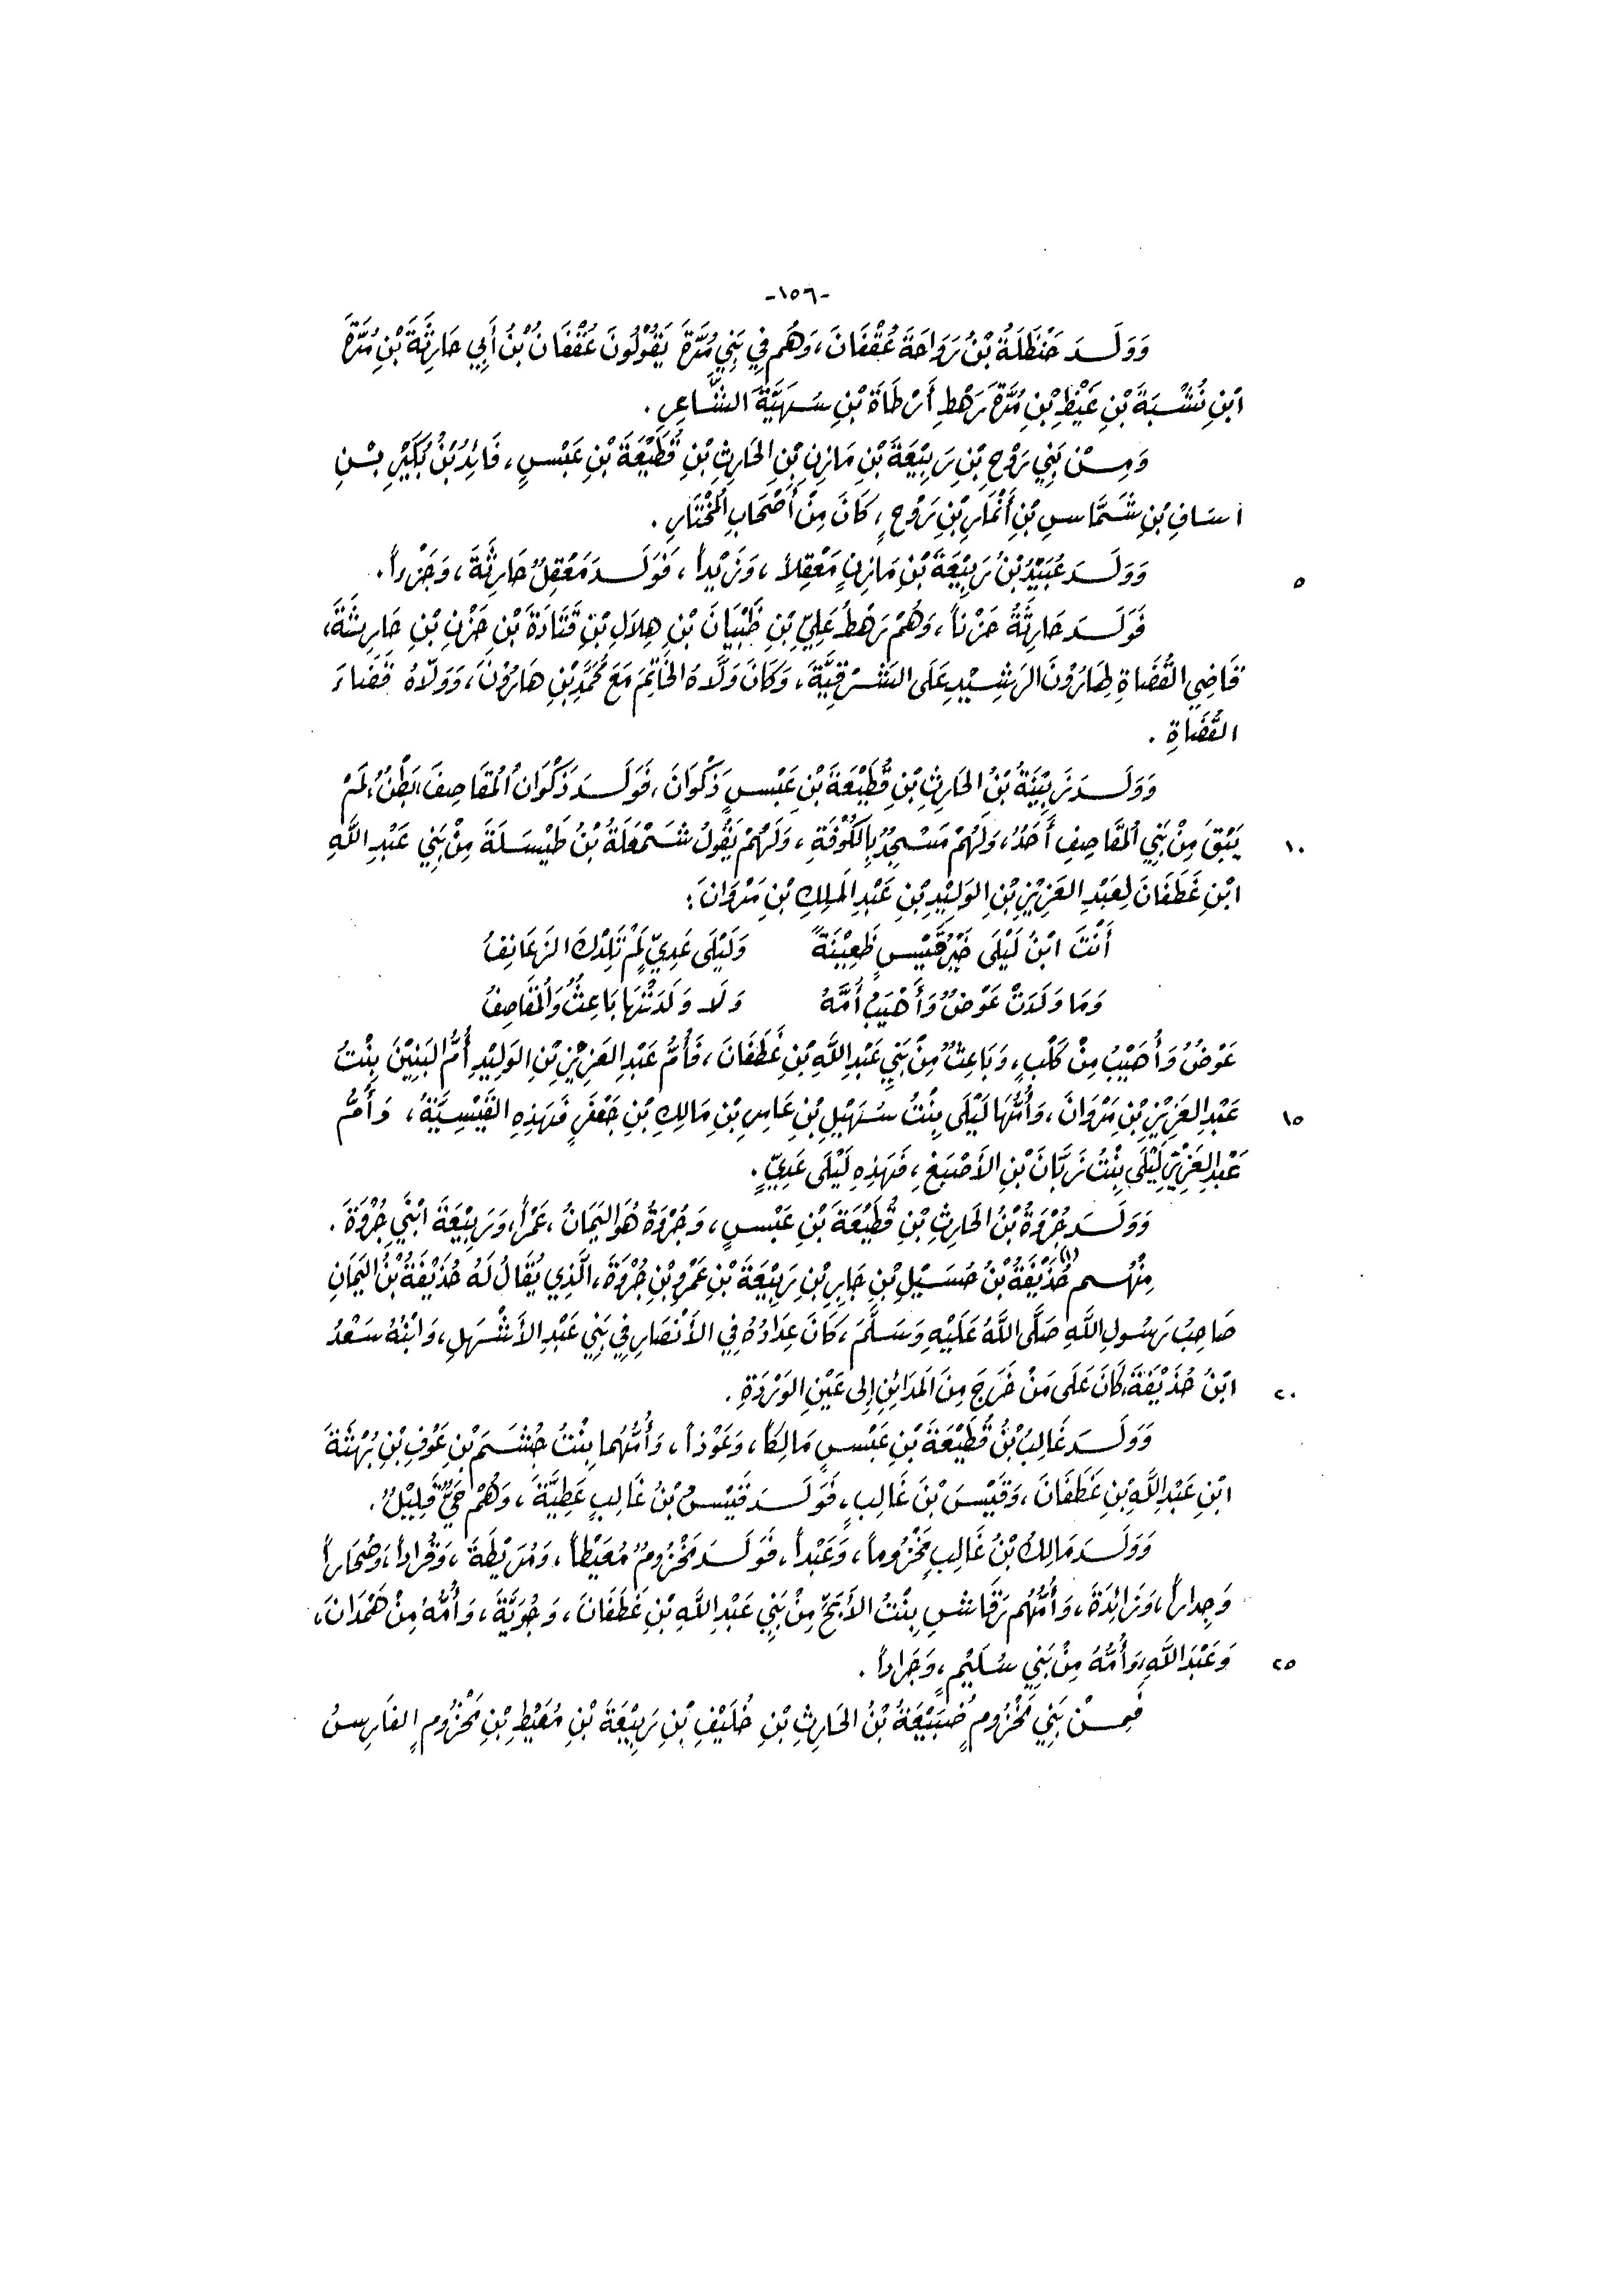 -١٥٦-
وَوَلَدَ حَنْظَلَةُ بْنُ رَوَاحَةَ عُقْفَانَ، وَهُم فِي بَنِي مُرَّةَ يَقُوْلُونَ عُقْفَانُ بْنُ أَبِي حَارِثَةَ بْنِ مُرَّةَ
ابْنِ نُشْبَةَ بْنِ غَيْظِ بْنِ مُرَّةَ رَهْطِ أَرْطَاةَ بْنِ سُهَيَّةَ الشَّاعِرِ.
وَمِنْ بَنِي رَوْحِ بْنِ رَبِيْعَةَ بْنِ مَازِنِ بْنِ الحَارِثِ بْنِ قُطَيْعَةَ بْنِ عَبْسٍ، فَائِدُ بْنُ بُكَيْرِ بْنِ
اسَافِ بْنِ شَمَّاسِ بْنِ أَنْمَارِ بْنِ رَوْحٍ، كَانَ مِنْ أَصْحَابِ المُخْتَارِ.
وَوَلَدَ عُبَيْدُ بْنُ رَبِيْعَةَ بْنِ مَازِنٍ مَعْقِلاً، وَزَيْداً، فَوَلَدَ مَعْقِلٌ حَارِثَةَ، وَجَزْءاً.
٥
فَوَلَدَ حَارِثَةُ حَزْناً، وَهُمْ رَهْطُ عَلِيِّ بْنِ ظَبْيَانَ بْنِ هِلاَلِ بْنِ قَتَادَةَ بْنِ حَزْنِ بْنِ حَارِثَةَ،
قَاضِي القُضَاةِ لِهَارُوْنَ الرَشِيْدِ عَلَى الشَّرْقِيَّةِ، وَكَانَ وَلَّاهُ الخَاتَمَ مَعَ مُحَمَّدِ بْنِ هَارُوْنَ، وَوَلَّاهُ قَضَاءَ
القُضَاةِ.
وَوَلَدَ زَبِيْنَةُ بْنُ الحَارِثِ بْنِ قُطَيْعَةَ بْنِ عَبْسٍ ذَكْوَانَ، فَوَلَدَ ذَكْوَانُ المُقَاصِفَ، بَطْنٌ، لَمْ
يَبْقَ مِنْ بَنِي المُقَاصِفِ أَحَدٌ، وَلَهُمْ مَسْجِدٌ بِالكُوْفَةِ، وَلَهُمْ يَقُولُ شَمْعَلَةُ بْنُ طَيْسَلَةَ مِنْ بَنِي عَبْدِ اللَّهِ
١٠
ابْنِ غَطَفَانَ لِعَبْدِ العَزِيْزِ بْنِ الوَلِيْدِ بْنِ عَبْدِ المَلِكِ بْنِ مَرْوَانَ:
أَنْتَ ابْنُ لَيْلَى خَيْرُ قَيْسٍ ظَعِيْنَةً وَلَيْلَى عَدِيٍّ لَمْ تَلِدْكَ الزَعَانِفُ
وَمَا وَلَدَتْ عَوْضٌ وَأَهْيَبُ أُمَّهُ وَلَا وَلَدَتْهَا بَاعِثٌ وَالمُقَاصِفُ
عَوْضٌ وَأُهَيْبُ مِنْ كَلْبٍ، وَبَاعِثٌ مِنْ بَنِي عَبْدِ اللَّهِ بْنِ غَطَفَانَ، فَأُمُّ عَبْدِ العَزِيْزِ بْنِ الوَلِيْدِ أُمُّ البَنِيْنَ بِنْتُ
عَبْدِ العَزِيْزِ بْنِ مَرْوَانَ، وَأُمُّهَا لَيْلَى بِنْتُ سُهَيْلِ بْنِ عَامِرِ بْنِ مَالِكِ بْنِ جَعْفَرٍ فَهَذِهِ القَيْسِيَّةُ، وَأُمُّ
١٥
عَبْدِ العَزِيْزِ لَيْلَى بِنْتُ زَبَّانَ بْنِ الأَصْبَغِ، فَهَذِهِ لَيْلَى عَدِيٍّ.
وَوَلَدَ جُرْوَةُ بْنُ الحَارِثِ بْنِ قُطَيْعَةَ بْنِ عَبْسٍ، وَجُرْوَةُ هُوَ اليَمَانُ، عَمْراً، وَرَبِيْعَةَ ابْنَي جُرْوَةَ.
مِنْهُم حُذَيْفَةُ(١) بْنُ حُسَيْلِ بْنِ جَابِرِ بْنِ رَبِيْعَةَ بْنِ عَمْرِو بْنِ جُرْوَةَ، الَّذِي يُقَالُ لَهُ حُذَيْفَةُ بْنُ اليَمَانِ
صَاحِبُ رَسُولِ اللَّهِ صَلَّى اللَّهُ عَلَيْهِ وَسَلَّمَ، كَانَ عِدَادُهُ فِي الأَنْصَارِ فِي بَنِي عَبْدِ الأَشْهَلِ، وَابْنُهُ سَعْدُ
ابْنُ حُذَيْفَةَ، كَانَ عَلَى مَنْ خَرَجَ مِنَ المَدَائِنِ إِلَى عَيْنِ الوَرْدَةِ.
٢٠
وَوَلَدَ غَالِبُ بْنُ قُطَيْعَةَ بْنِ عَبْسٍ مَالِكاً، وَعَوْذاً، وَأُمُّهُما بِنْتُ جُشَمَ بْنِ عَوْفِ بْنِ بُهْثَةَ
ابْنِ عَبْدِ اللَّهِ بْنِ غَطَفَانَ، وَقَيْسَ بْنَ غَالِبٍ، فَوَلَدَ قَيْسُ بْنُ غَالِبٍ عَطِيَّةَ، وَهُمْ حَيٌّ قَلِيْلٌ.
وَوَلَدَ مَالِكُ بْنُ غَالِبٍ مَخْزُوماً، وَعَبْداً، فَوَلَدَ مَخْزُومٌ مُعَيْطاً، وَمُرَيْطَةَ، وَقُرَاداً، وَصُحَاراً
وَجِدَاراً، وَزَائِدَةَ، وَأُمُّهُم رَقَاشِ بِنْتُ الأَبَحِّ مِنْ بَنِي عَبْدِ اللَّهِ بْنِ غَطَفَانَ، وَجُوَيَّةَ، وَأُمُّهُ مِنْ هَمْدَانَ،
وَعَبْدَ اللَّهِ، وَأُمُّهُ مِنْ بَنِي سُلَيْمٍ، وَجَرَاداً.
٢٥
فَمِنْ بَنِي مَخْزُومٍ ضُبَيْعَةُ بْنُ الحَارِثِ بْنِ خُلَيْفِ بْنِ رَبِيْعَةَ بْنِ مُعَيْطِ بْنِ مَخْزُومٍ الفَارِسُ